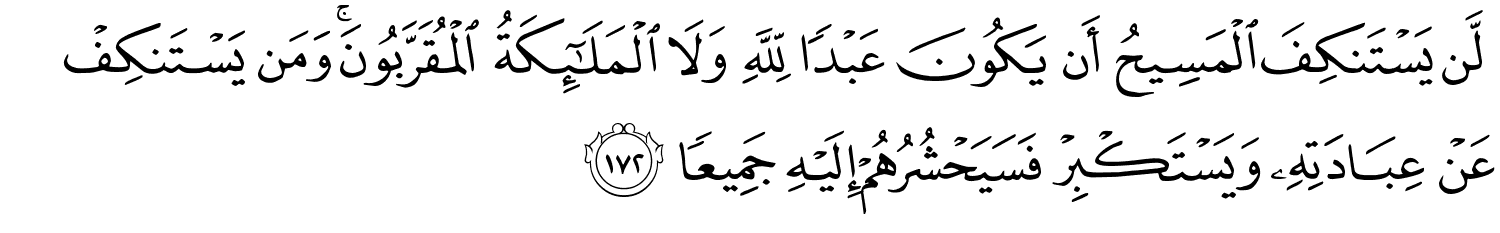 لَّن يَسْتَنكِفَ ٱلْمَسِيحُ أَن يَكُونَ عَبْدًا لِّلَّهِ وَلَا ٱلْمَلَـٰٓئِكَةُ ٱلْمُقَرَّبُونَ ۚ وَمَن يَسْتَنكِفْ
عَنْ عِبَادَتِهِۦ وَيَسْتَكْبِرْ فَسَيَحْشُرُهُمْ إِلَيْهِ جَمِيعًا ١٧٢